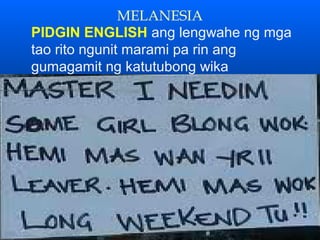 MELANESIA
PIDGIN ENGLISH ang lengwahe ng mga
tao rito ngunit marami pa rin ang
gumagamit ng katutubong wika
MASTER I NEEDIM
SOME GIRL BLONG WOK.
HEMI MAS WAN YR II
LEAVER. HEMI MAS WOK
LONG WEEKEND TU!!